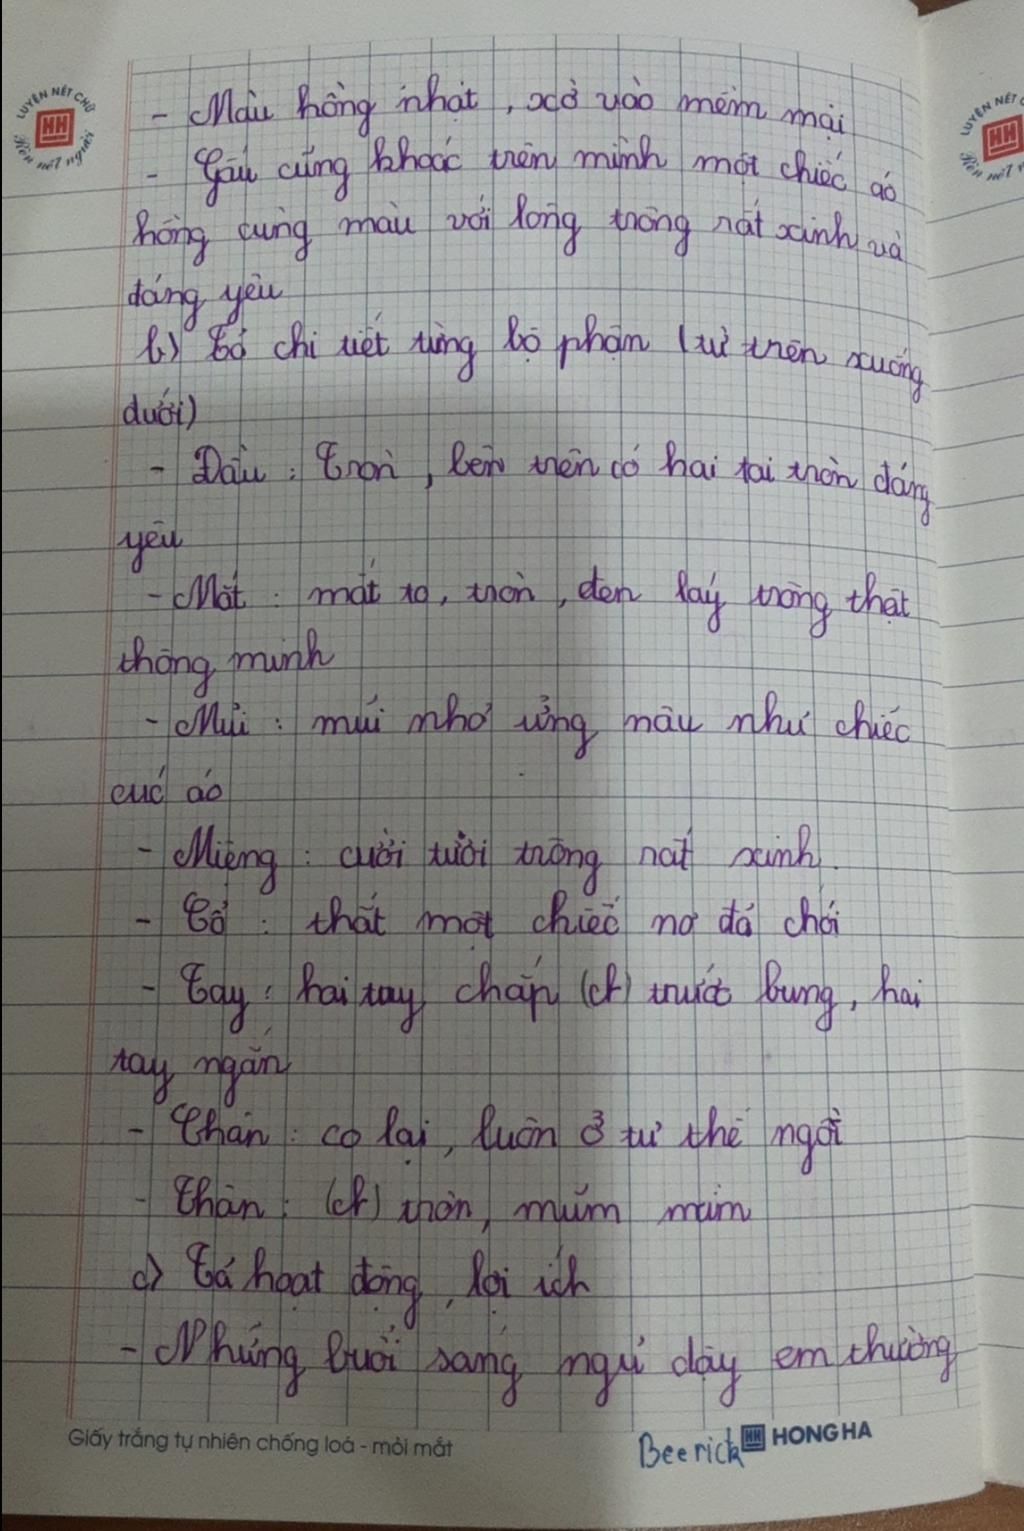 LUYỆN NÉT CHỮ
HH
Rèn nết người
LUYỆN NÉT
HH
Rèn nết
- Màu hồng nhạt, xờ vào mềm mại
- Gấu cũng khoác trên mình một chiếc áo
hồng cùng màu với lông trông rất xinh và
đáng yêu
b) Tả chi tiết từng bộ phận (từ trên xuống
dưới)
- Đầu : Tròn, bên trên có hai tai tròn đáng
yêu
- Mắt : mắt to, tròn, đen láy trông thật
thông minh
- Mũi : mũi nhỏ ửng nâu như chiếc
cúc áo
- Miệng : cười tười trông rất xinh.
- Cổ : thắt một chiếc nơ đỏ chói
- Tay : hai tay chắp (ch) trước bụng, hai
tay ngắn
- Chân : co lại, luôn ở tư thế ngồi
- Thân : (ch) tròn, mũm mĩm
c) Tả hoạt động, lợi ích
- Những buổi sáng ngủ dậy em thường
Giấy trắng tự nhiên chống loá - mỏi mắt
Beerick HH HONG HA